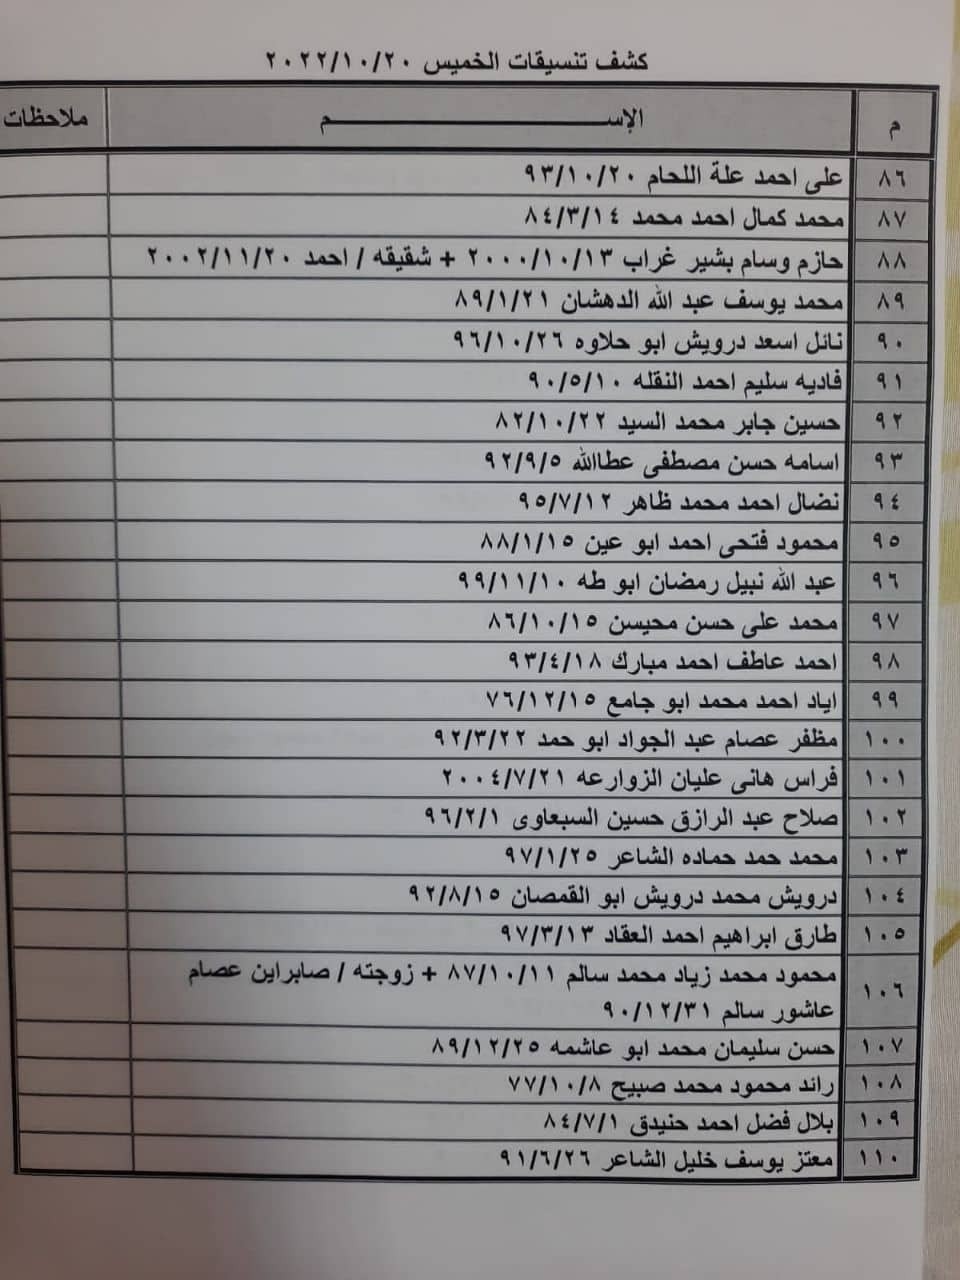 كشف تنسيقات الخميس ٢٠٢٢/١٠/٢٠
م الإســـــــــم ملاحظات
٨٦ على احمد علة اللحام ٩٣/١٠/٢٠
٨٧ محمد كمال احمد محمد ٨٤/٣/١٤
٨٨ حازم وسام بشير غراب ٢٠٠٠/١٠/١٣ + شقيقه / احمد ٢٠٠٢/١١/٢٠
٨٩ محمد يوسف عبد الله الدهشان ٨٩/١/٢١
٩٠ نائل اسعد درويش ابو حلاوه ٩٦/١٠/٢٦
٩١ فاديه سليم احمد النقله ٩٠/٥/١٠
٩٢ حسين جابر محمد السيد ٨٢/١٠/٢٢
٩٣ اسامه حسن مصطفى عطاالله ٩٢/٩/٥
٩٤ نضال احمد محمد ظاهر ٩٥/٧/١٢
٩٥ محمود فتحى احمد ابو عين ٨٨/١/١٥
٩٦ عبد الله نبيل رمضان ابو طه ٩٩/١١/١٠
٩٧ محمد على حسن محيسن ٨٦/١٠/١٥
٩٨ احمد عاطف احمد مبارك ٩٣/٤/١٨
٩٩ اياد احمد محمد ابو جامع ٧٦/١٢/١٥
١٠٠ مظفر عصام عبد الجواد ابو حمد ٩٢/٣/٢٢
١٠١ فراس هانى عليان الزوارعه ٢٠٠٤/٧/٢١
١٠٢ صلاح عبد الرازق حسين السبعاوى ٩٦/٢/١
١٠٣ محمد حمد حماده الشاعر ٩٧/١/٢٥
١٠٤ درويش محمد درويش ابو القمصان ٩٢/٨/١٥
١٠٥ طارق ابراهيم احمد العقاد ٩٧/٣/١٣
١٠٦ محمود محمد زياد محمد سالم ٨٧/١٠/١١ + زوجته / صابراين عصام
عاشور سالم ٩٠/١٢/٣١
١٠٧ حسن سليمان محمد ابو عاشمه ٨٩/١٢/٢٥
١٠٨ رائد محمود محمد صبيح ٧٧/١٠/٨
١٠٩ بلال فضل احمد حنيدق ٨٤/٧/١
١١٠ معتز يوسف خليل الشاعر ٩١/٦/٢٦